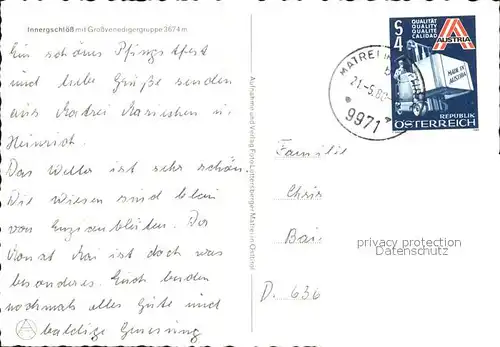 Innergschlöß mit Großvenedigergruppe 3674 m
Ein schönes Pfingstfest
und liebe Grüße senden
aus Matrei Karinchen u.
Heinrich.
Das Wetter ist sehr schön.
Die Wiesen sind blau
von Enzianblüten. Der
Monat Mai ist doch was
besonderes. Euch beiden
nochmals alles Gute und
baldige Genesung
Aufnahme und Verlag Foto Lottersberger, Matrei in Osttirol
MATREI IN OSTTIROL
21.-5.80
9971
S 4
QUALITÄT
QUALITY
QUALITE
CALIDAD
AUSTRIA
MADE IN
AUSTRIA
REPUBLIK
ÖSTERREICH
Familie
Chris
Bai
privacy protection
Datenschutz
D. 636